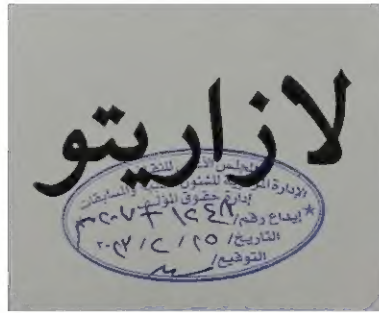 لازاريتو
المجلس الأعلى للثقافة
الإدارة المركزية للشئون الأدبية والمسابقات
إدارة حقوق المؤلف
إيداع رقم/
التاريخ/ ٢٥ / ٢ /
التوقيع/